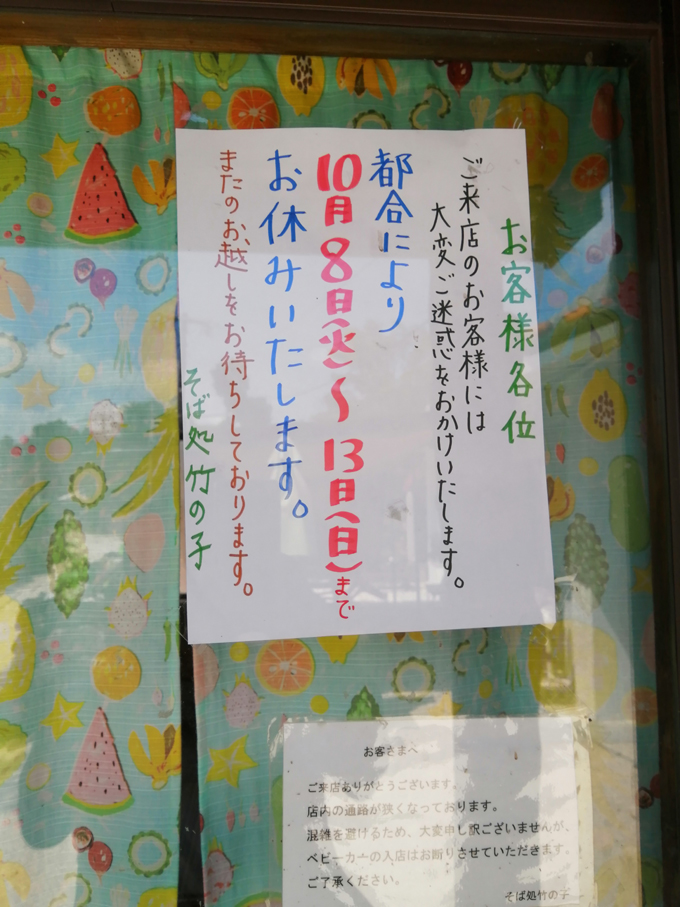 お客様各位
ご来店のお客様には
大変ご迷惑をおかけいたします。
都合により
10月8日(火)〜13日(日)まで
お休みいたします。
またのお越しをお待ちしております。
そば処竹の子
お客さまへ
ご来店ありがとうございます。
店内の通路が狭くなっております。
混雑を避けるため、大変申し訳ございませんが、
ベビーカーの入店はお断りさせていただきます。
ご了承ください。
そば処竹の子